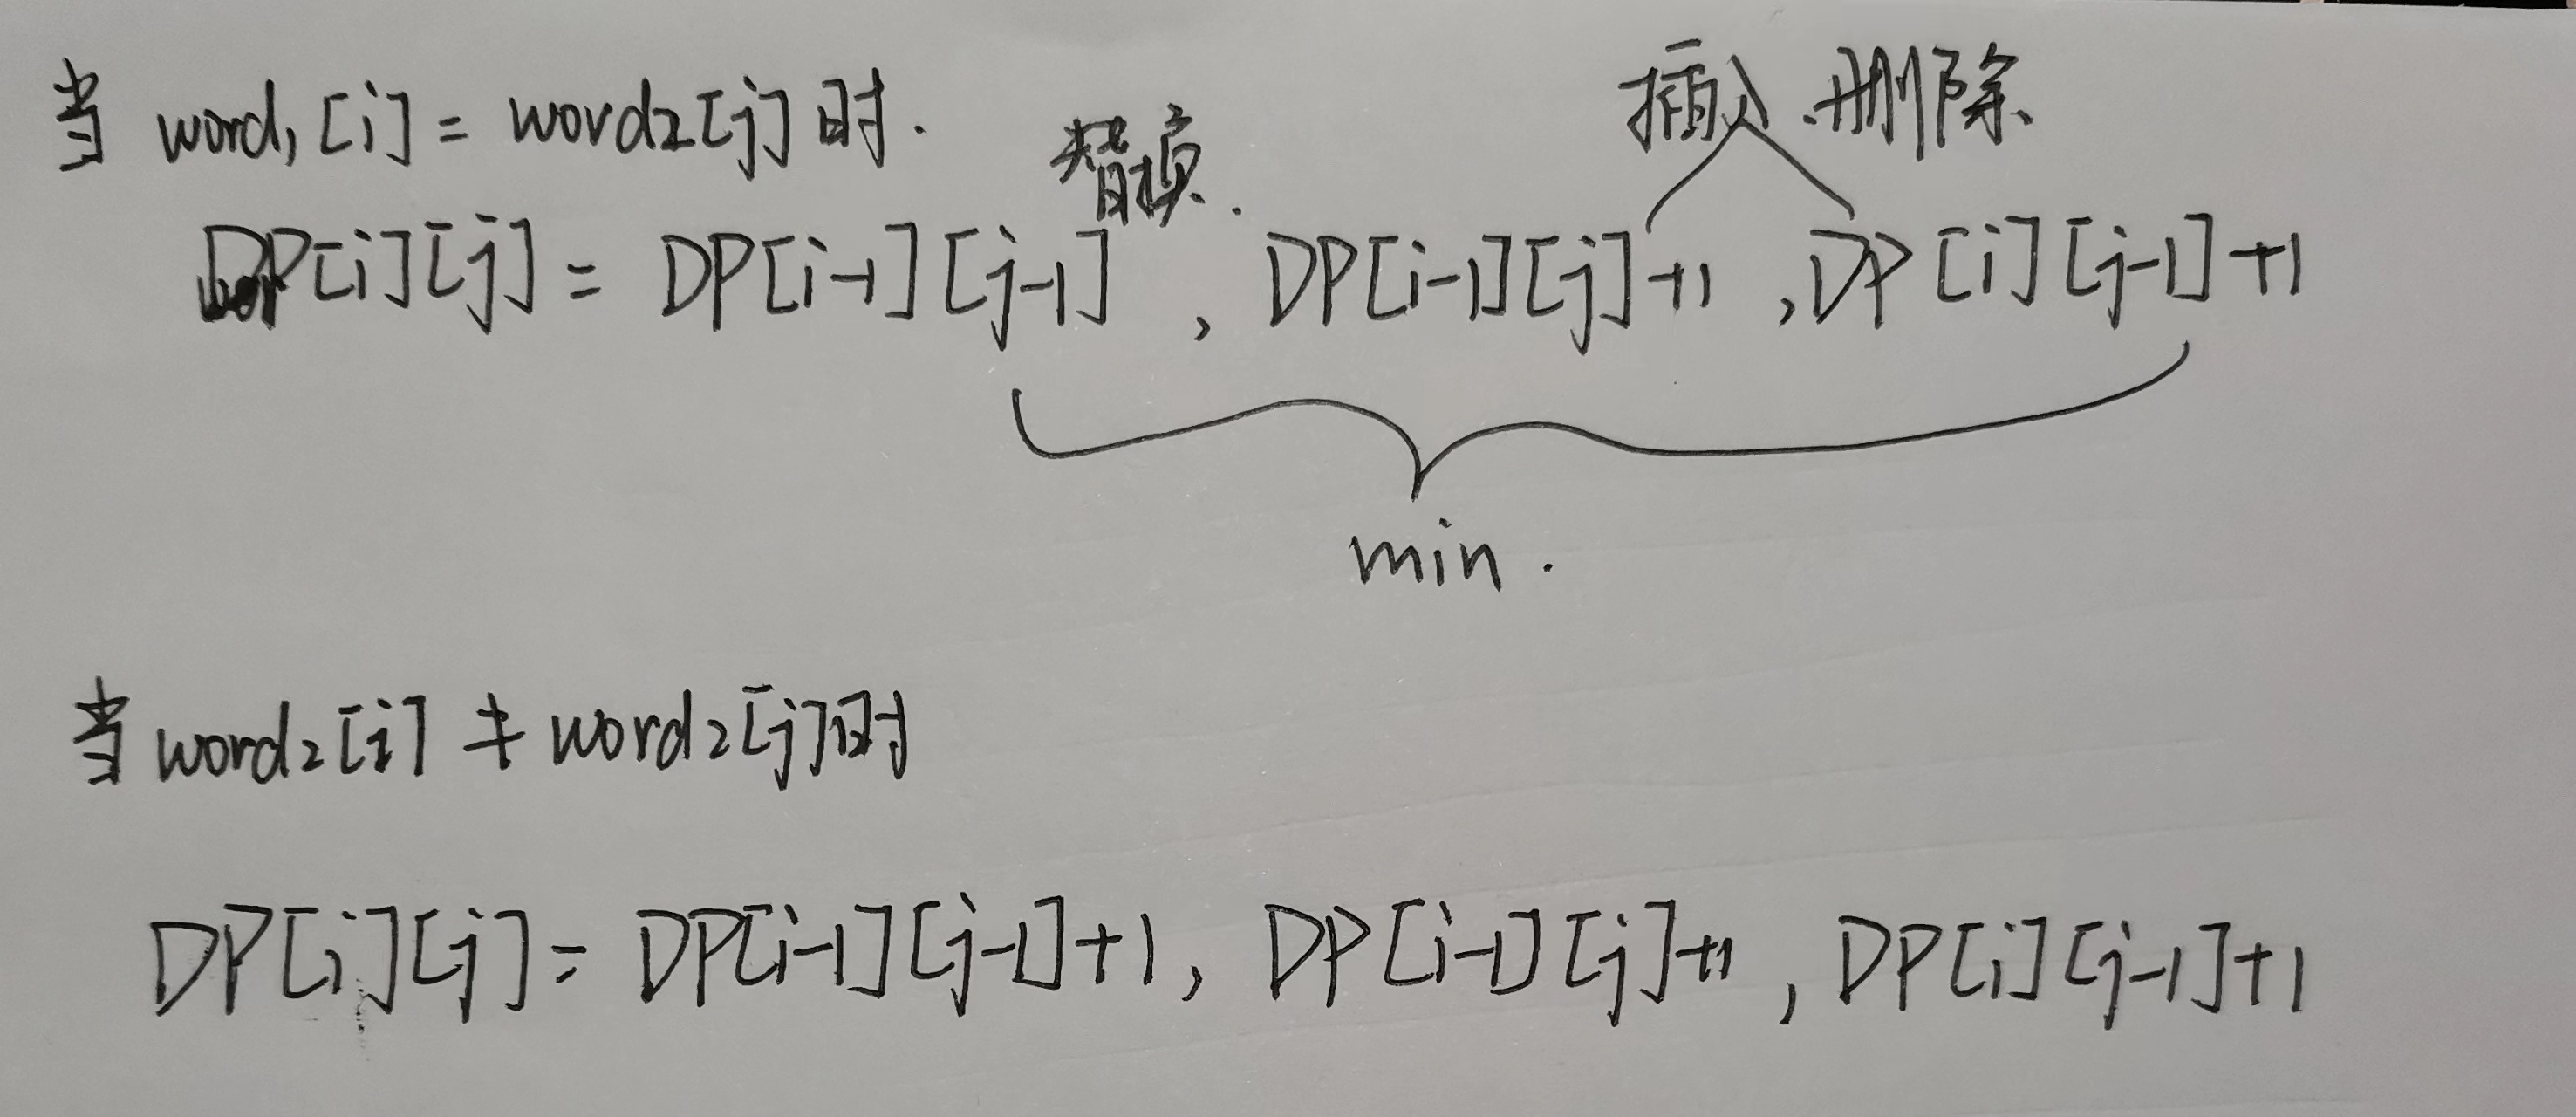 当 word1[i] = word2[j] 时.
替换.
插入.删除、
DP[i][j] = DP[i-1][j-1] , DP[i-1][j]+1 , DP[i][j-1]+1
min.
当 word2[i] ≠ word2[j]时
DP[i][j] = DP[i-1][j-1]+1, DP[i-1][j]+1, DP[i][j-1]+1